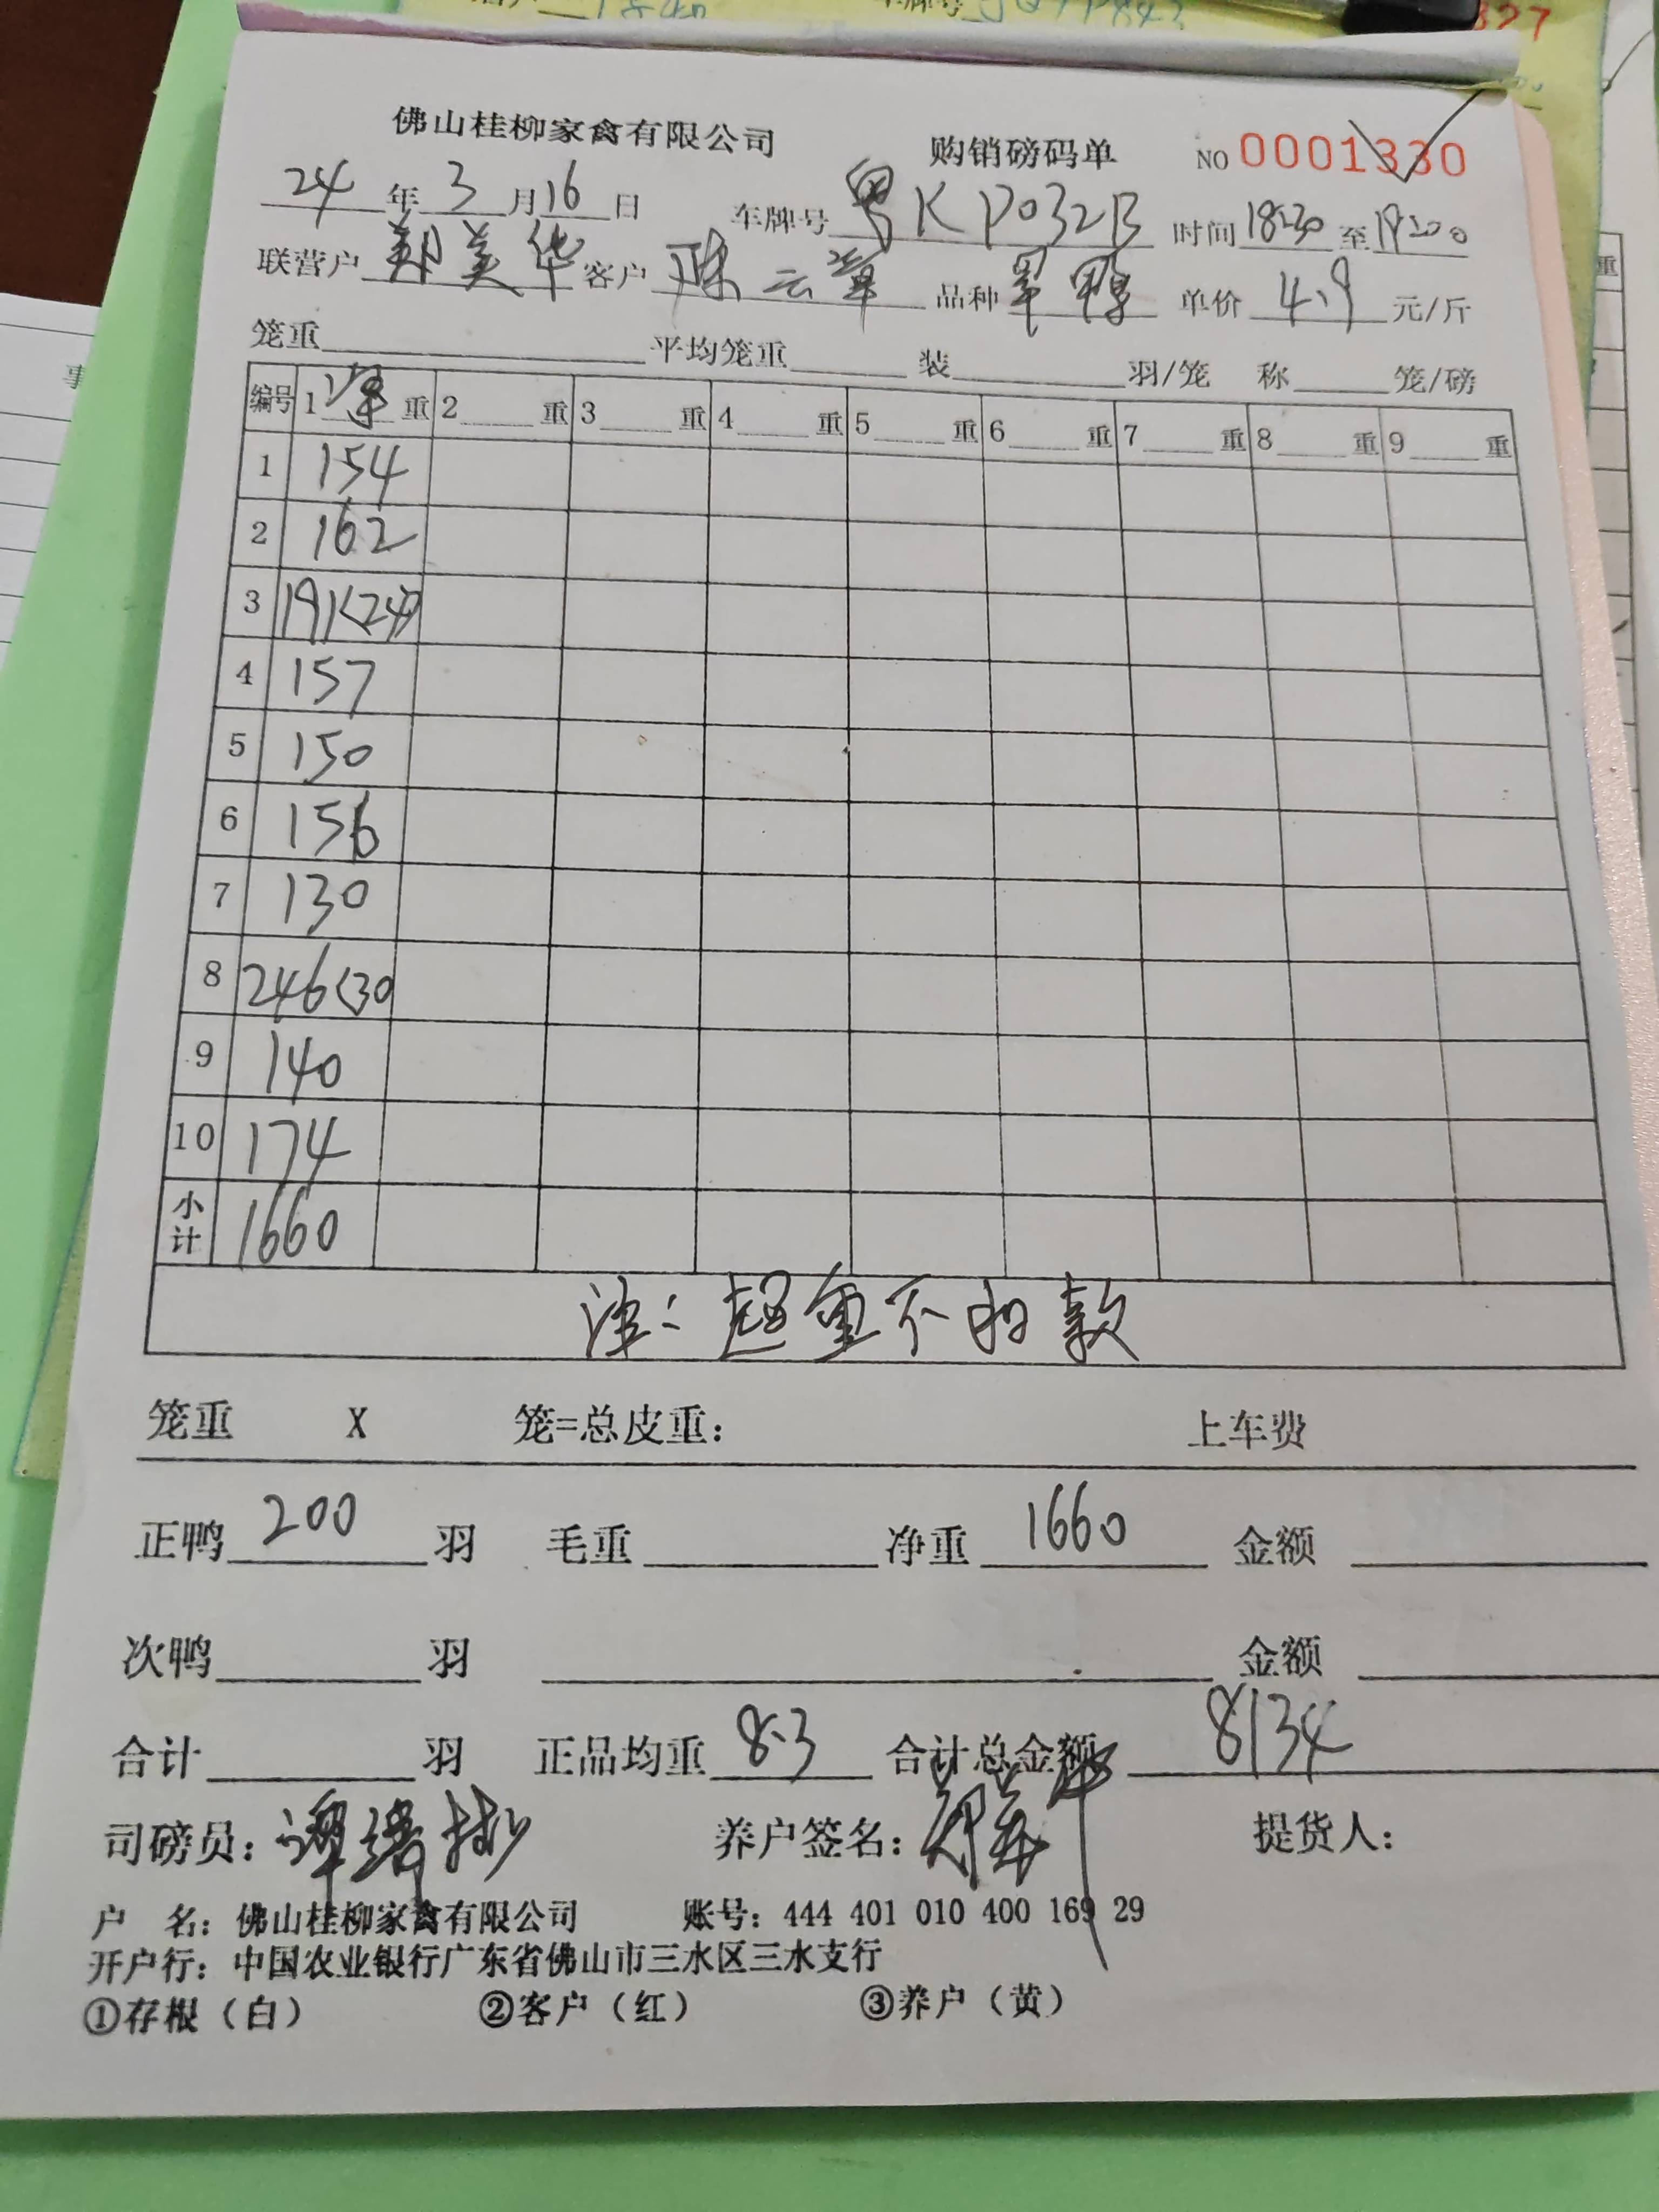 佛山桂柳家禽有限公司 购销磅码单 NO 0001330
24年3月16日 车牌号 粤KP032B 时间 18:30 至 19:00
联营户 郑美华 客户 陈云章 品种 单价 4.9 元/斤
笼重 平均笼重 装 羽/笼 称 笼/磅
编号 1 净 重 2 重 3 重 4 重 5 重 6 重 7 重 8 重 9 重
1 154
2 162
3 191<24
4 157
5 150
6 156
7 130
8 246<30
9 140
10 174
小计 1660
注:超重不扣款
笼重 X 笼=总皮重: 上车费
正鸭 200 羽 毛重 净重 1660 金额
次鸭 羽 金额
合计 羽 正品均重 8.3 合计总金额 8134
司磅员: 养户签名: 提货人:
户 名: 佛山桂柳家禽有限公司 账号: 444 401 010 400 169 29
开户行: 中国农业银行广东省佛山市三水区三水支行
①存根(白) ②客户(红) ③养户(黄)